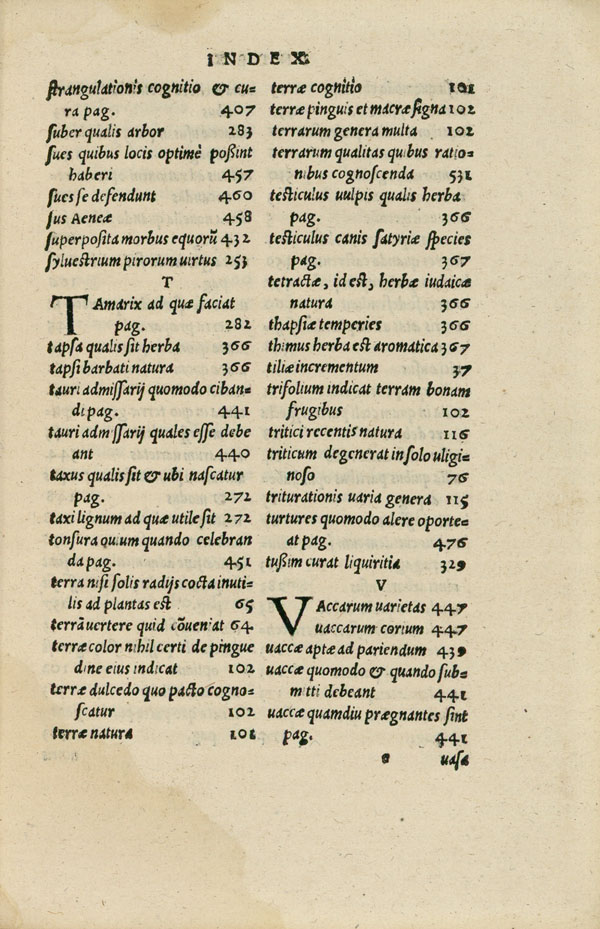 INDEX.
strangulationis cognitio & cu=
ra pag. 407
suber qualis arbor 283
sues quibus locis optimè possint
haberi 457
sues se defendunt 460
sus Aeneæ 458
superposita morbus equorũ 432
syluestrium pirorum uirtus 253
T
TAmarix ad quæ faciat
pag. 282
tapsa qualis sit herba 366
tapsi barbati natura 366
tauri admissarij quomodo ciban=
di pag. 441
tauri admissarij quales esse debe
ant 440
taxus qualis sit & ubi nascatur
pag. 272
taxi lignum ad quæ utile sit 272
tonsura ouium quando celebran
da pag. 451
terra nisi solis radijs cocta inuti=
lis ad plantas est 65
terrã uertere quid cõueniat 64
terræ color nihil certi de pingue
dine eius indicat 102
terræ dulcedo quo pacto cogno=
scatur 102
terræ natura 101
terræ cognitio 101
terræ pinguis et macræ signa 102
terrarum genera multa 102
terrarum qualitas quibus ratio=
nibus cognoscenda 531
testiculus uulpis qualis herba
pag. 366
testiculus canis satyriæ species
pag. 367
tetractæ, id est, herbæ iudaicæ
natura 366
thapsiæ temperies 366
thimus herba est aromatica 367
tiliæ incrementum 37
trifolium indicat terram bonam
frugibus 102
tritici recentis natura 116
triticum degenerat in solo uligi=
noso 76
triturationis uaria genera 115
turtures quomodo alere oporte=
at pag. 476
tussim curat liquiritia 329
V
VAccarum uarietas 447
uaccarum corium 447
uaccæ aptæ ad pariendum 439
uaccæ quomodo & quando sub=
mitti debeant 441
uaccæ quamdiu prægnantes sint
pag. 441
uasa